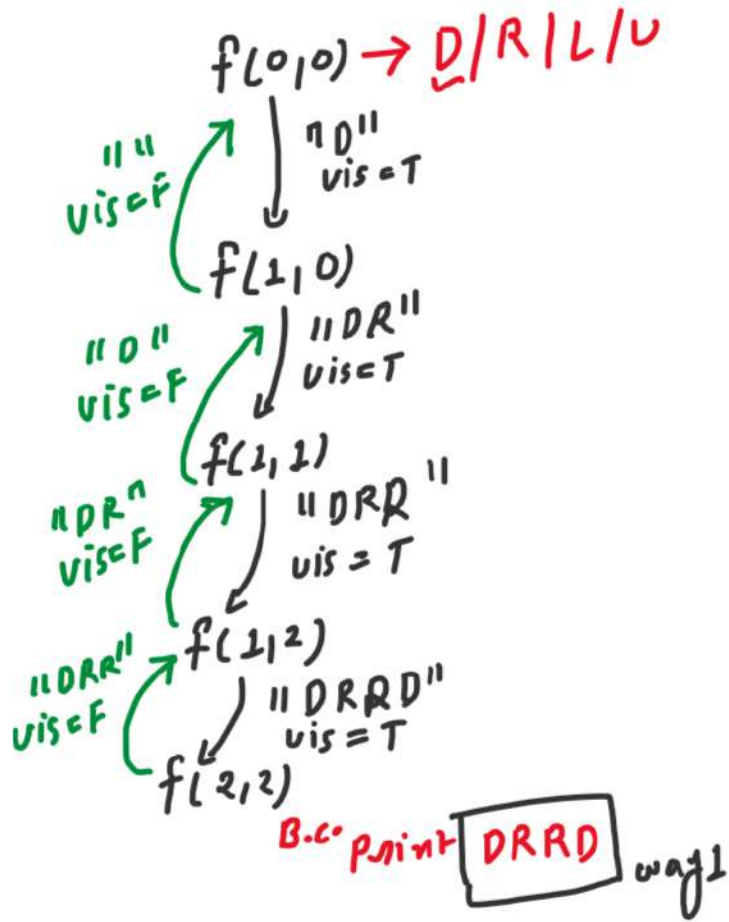 f(0,0) → D/R/L/U
"D"
vis = T
" "
vis = F
f(1,0)
"DR"
vis = T
"D"
vis = F
f(1,1)
"DRR"
vis = T
"DR"
vis = F
f(1,2)
"DRRD"
vis = T
"DRR"
vis = F
f(2,2)
B.C. print DRRD way1